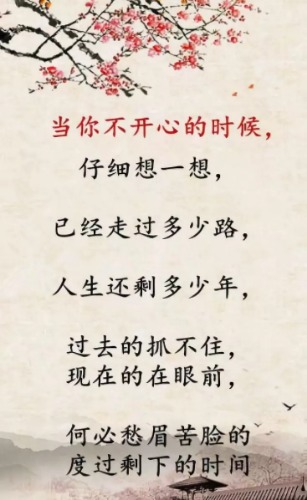 当你不开心的时候，
仔细想一想，
已经走过多少路，
人生还剩多少年，
过去的抓不住，
现在的在眼前，
何必愁眉苦脸的
度过剩下的时间